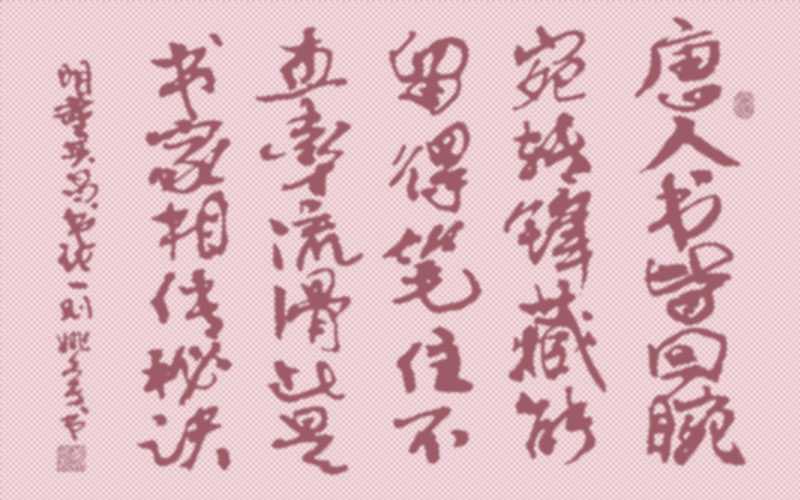 唐人书皆回腕
宛转锋藏能
留得笔住不
直率流滑此是
书家相传秘诀
明董其昌书论一则 姚 书